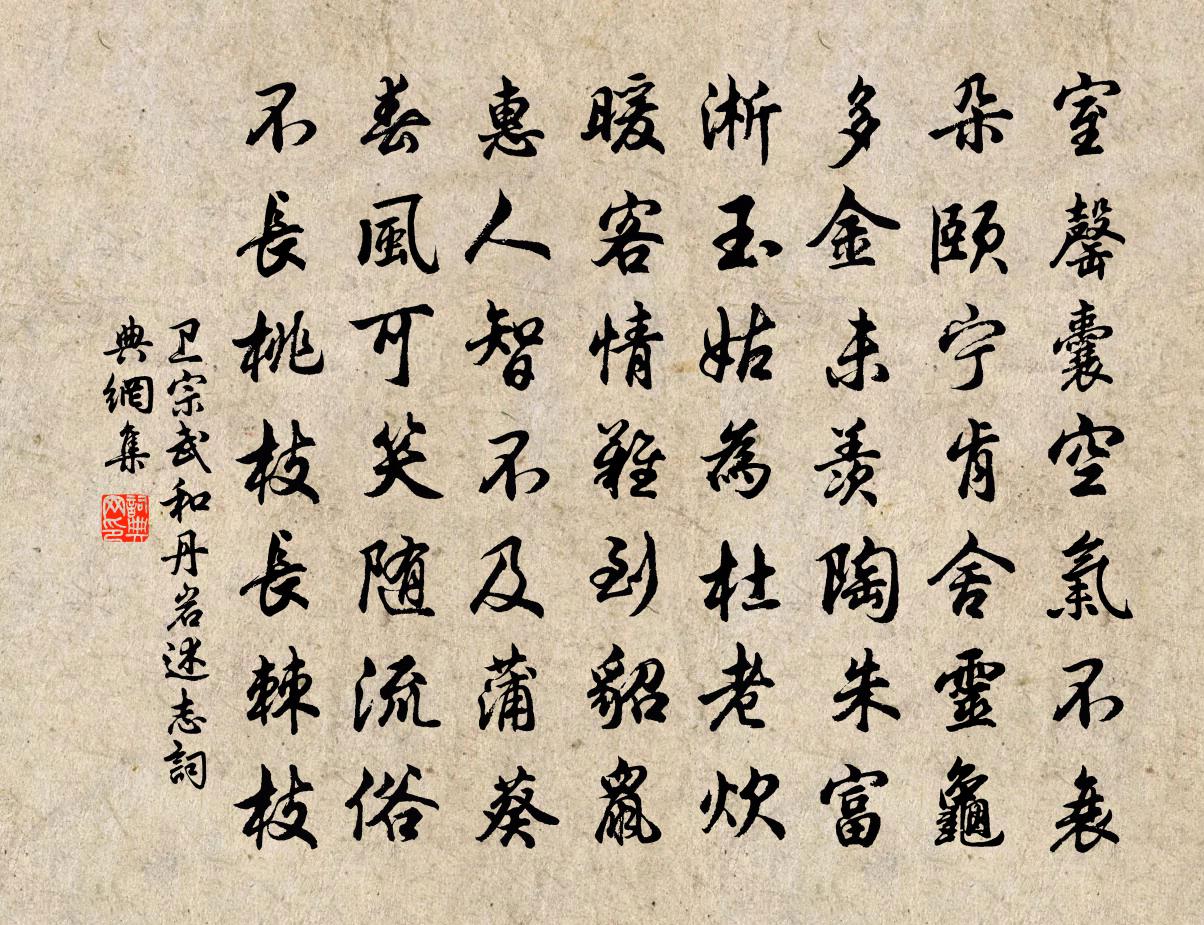 室罄囊空氣不衰
朵頤宁肯舍靈龜
多金未羨陶朱富
淅玉姑為杜老炊
暖客情難到貂鼠
惠人智不及蒲葵
春風可笑随流俗
不長桃枝長棘枝
卫宗武和丹岩述志詞
典網集
詞典網印